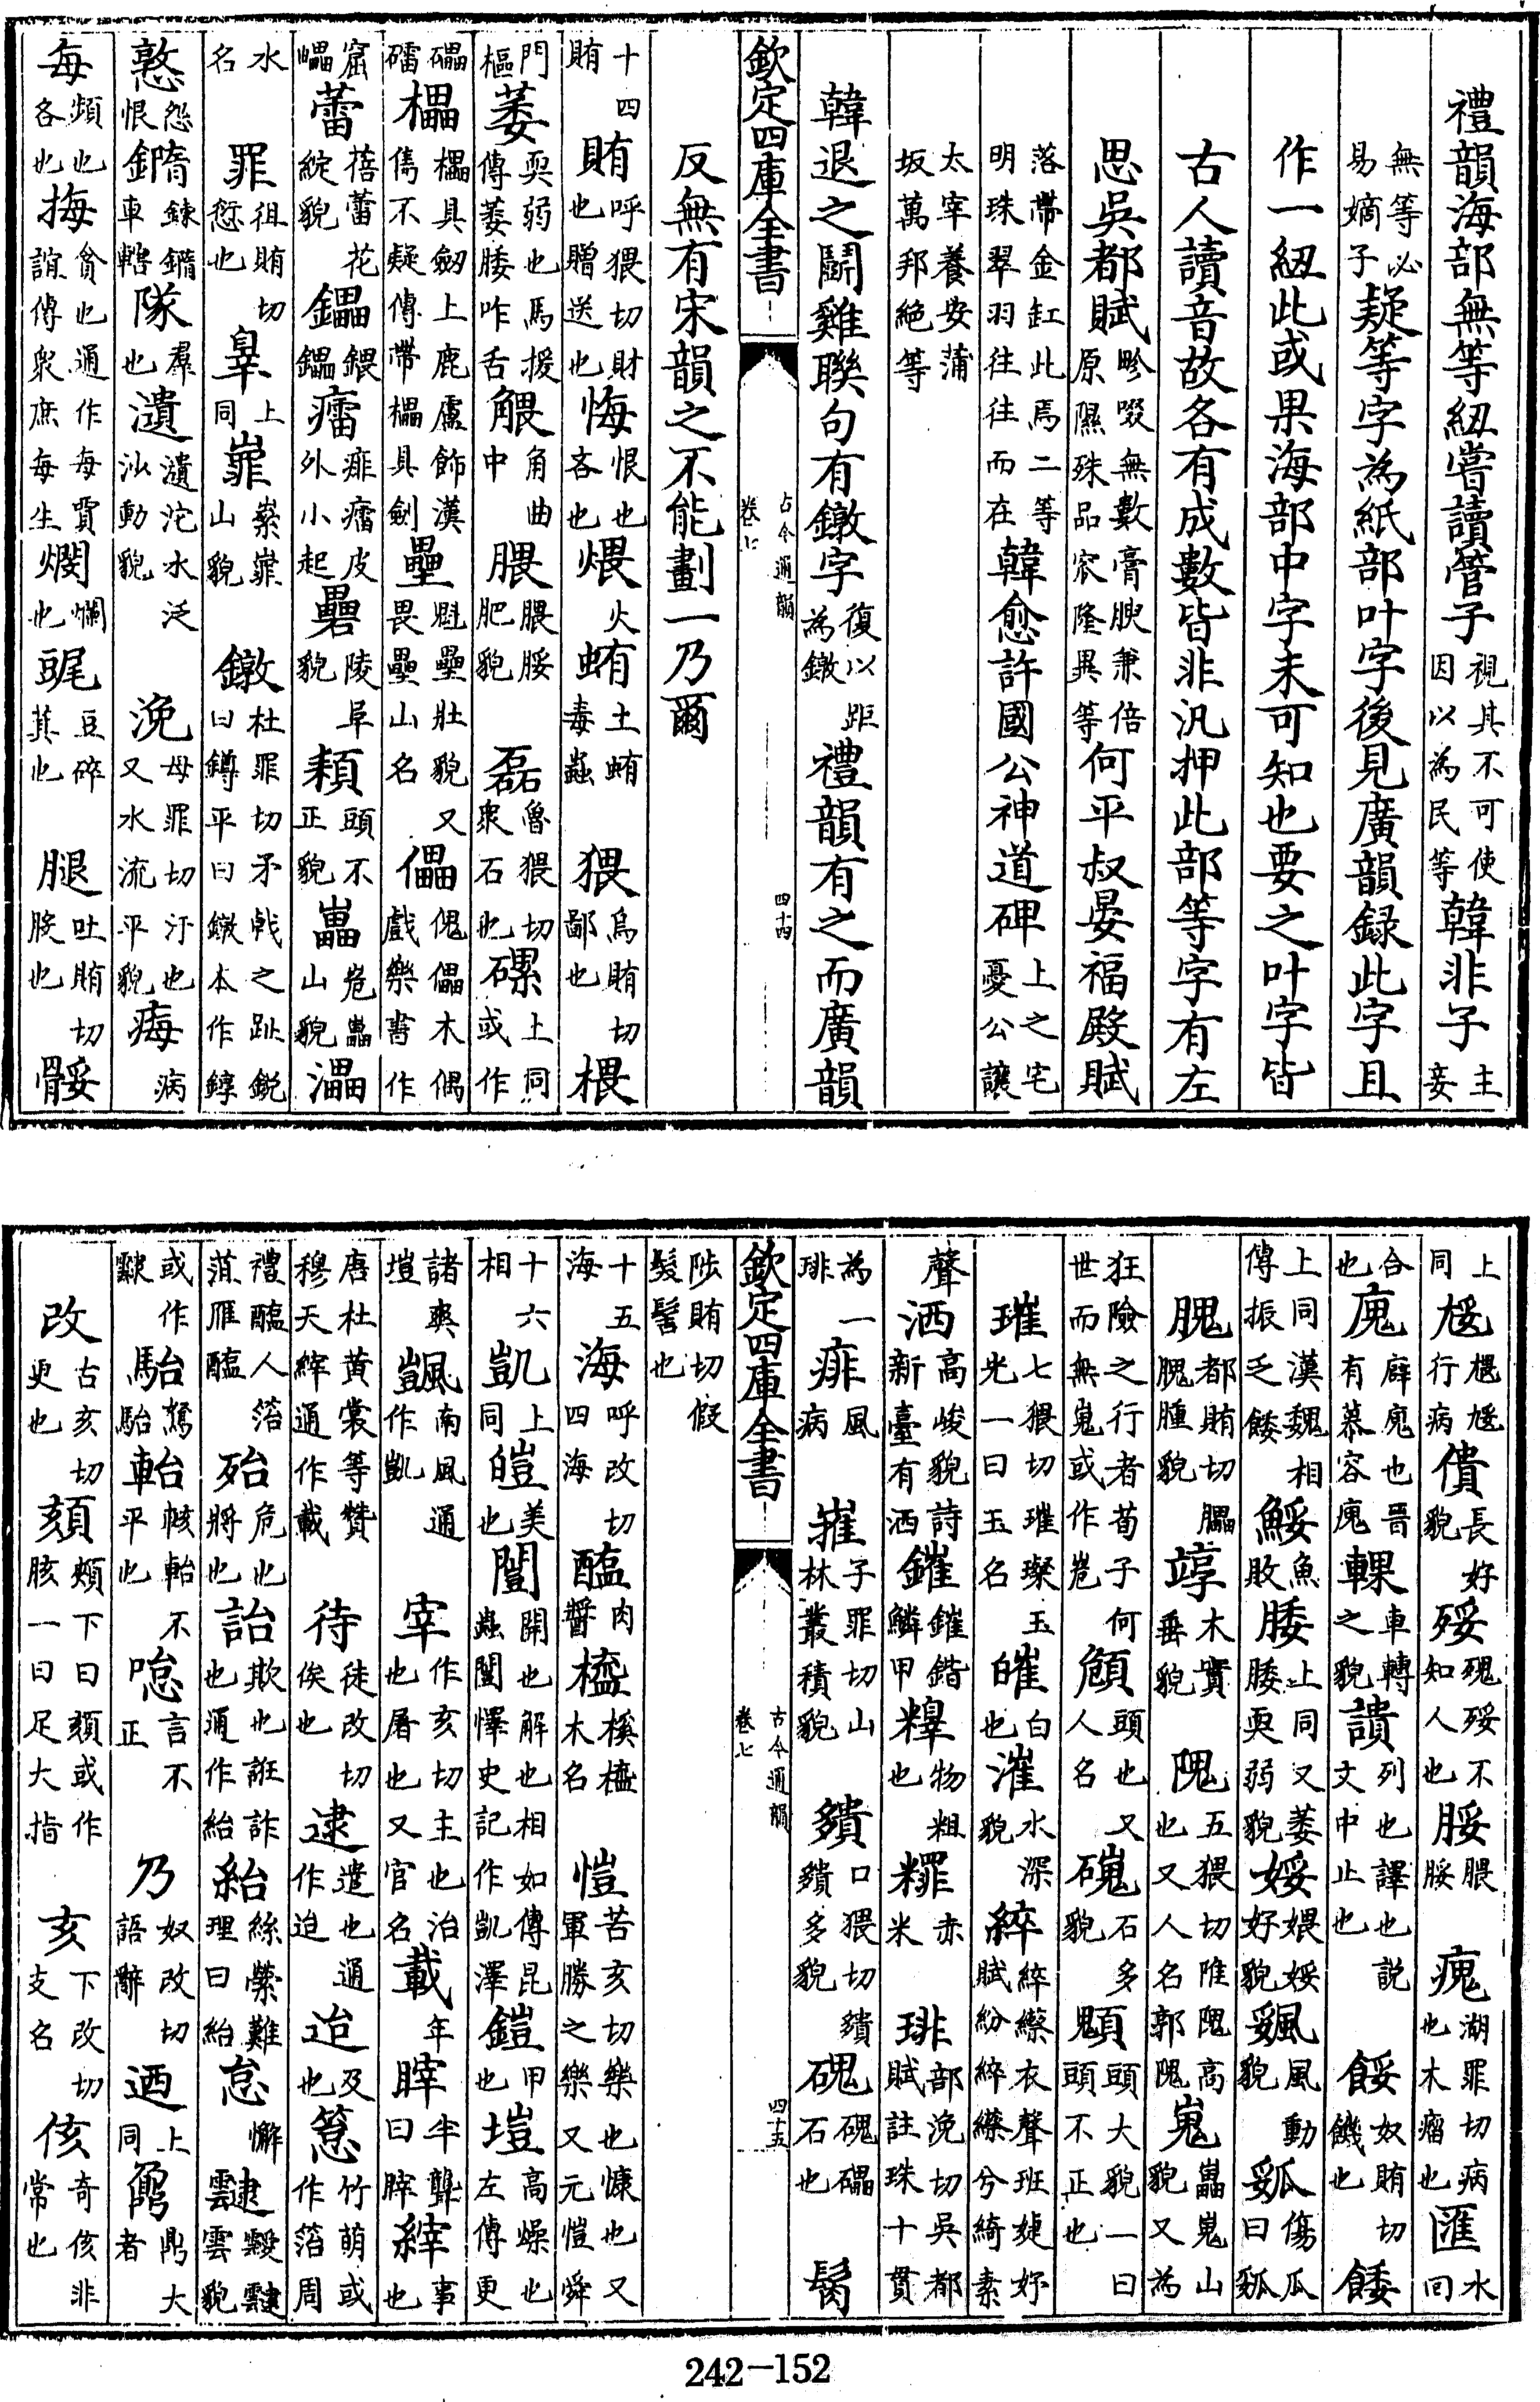 禮韻海部無等紐嘗讀管子視其不可使因以為民等韓非子主妾
無等必易嫡子疑等字為紙部叶字後見廣韻録此字且
作一紐此或果海部中字未可知也要之叶字皆
古人讀音故各有成數皆非汎押此部等字有左
思吳都賦畛畷無數膏腴兼倍原隰殊品窊隆異等何平叔晏福殿賦
落帶金釭此焉二等明珠翠羽往往而在韓愈許國公神道碑上之宅憂公讓
太宰養安蒲坂萬邦絶等
韓退之鬭雞聯句有鐓字復以距為鐓禮韻有之而廣韻
欽定四庫全書 古今通韻 卷七 四十四
反無有宋韻之不能劃一乃爾
十四賄賄呼猥切財也贈送也悔恨也吝也煨火蛕土蛕毒蟲猥烏賄切鄙也椳
門樞萎耎弱也馬援傳萎腇咋舌䚈角曲中腲腲脮肥貌磊魯猥切衆石也磥上同或作
礧礌櫑櫑具劒上鹿盧飾漢雋不疑傳帶櫑具劍壘魁壘壯貌又畏壘山名儡傀儡木偶戲樂書作
窟㠥蕾蓓蕾花綻貌鑘鍡鑘癗痱癗皮外小起礨陵阜貌頛頭不正貌㠥嵬㠥山貌灅
水名罪徂賄切愆也辠上同嶵崇嶵山貌鐓杜罪切矛戟之趾鋭曰鐏平曰鐓本作錞
憝怨恨鐫錬鐫車轄隊羣也瀢瀢沱水泛沙動貌浼母罪切汙也又水流平貌痗病
每頻也各也挴貪也通作每賈誼傳衆庶每生爛也豆碎萁也腿吐賄切股也骽
上同㞂㞇㞂行病僓長好貌㱬㱱㱬不知人也脮腲脮瘣湖罪切病也木瘤也匯水回
合也廆廦廆也晋有慕容廆輠車轉之貌讃列也譯也説文中止也餒奴賄切饑也餧
上同漢魏相傳振乏餧鮾魚敗腇上同又萎腇耎弱貌娞婑娞好貌風動貌㼏傷瓜曰㼏
腲都賄切腲腫貌木實垂貌隗五猥切陮隗高也又人名郭隗嵬㠥嵬山貌又為
狂險之行者荀子何世而無嵬或作峞頠頭也又人名磈石多貌頭大貌一曰頭不正也
璀七猥切璀璨玉光一曰玉名皠白也漼水深貌綷綷䌨衣聲班婕妤賦紛綷䌨兮綺素
聲洒高峻貌詩新臺有洒鏙鏙錯鱗甲物粗也赤米琲部浼切吳都賦註珠十貫
為一琲痱風病嶊子罪切山林叢積貌口猥切多貌磈磈礧石也鬌
陟賄切假髮髻也
欽定四庫全書 古今通韻 卷七 四十五
十五海海呼改切四海醢肉醬㯼㯼木名愷苦亥切樂也慷也又軍勝之樂又元愷舜
十六相凱上同皚美也闓開也解也相如傳昆蟲闓懌史記作凱澤鎧甲也塏高燥也左傳更
諸爽塏颽南風通作凱宰作亥切主也治也屠也又官名載年䏁半聾曰䏁縡事也
唐杜黄裳等贊穆天縡通作載待徒改切俟也逮遣也通作迨迨及也䈚竹萌或作箈周
禮醢人箈菹雁醢殆危也將也詒欺也誑詐也通作紿紿絲縈難理曰紿怠懈靆靉靆雲貌
或作靆駘駑駘軩㡕軩不平也唸言不正乃奴改切語辭迺上同鼐鼎大者
改古亥切更也頦頰下曰頦或作胲一曰足大指亥下改切支名侅奇侅非常也
242-152